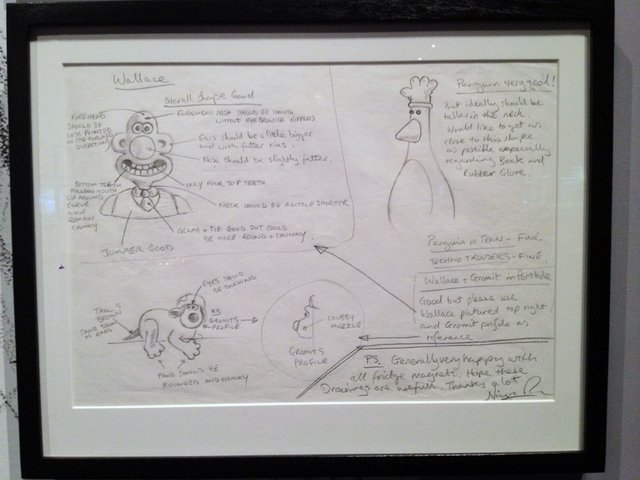 Wallace
Overall shape Good
FOREHEAD
SHOULD BE
LESS POINTED
IN THE FORWARD
DIRECTION
FOREHEAD AREA SHOULD BE SMOOTH
WITHOUT EYEBROW RIPPLES
Ears should be a little bigger
and with fatter rims.
Nose should be slightly fatter.
BOTTOM TEETH
FOLLOW MOUTH
UP AROUND
CURVE
and
REMAIN
CHUNKY
ONLY FOUR TOP TEETH
NECK SHOULD BE A LITTLE SHORTER
COLLAR + TIE GOOD BUT COULD
BE MORE ROUND + CHUNKY.
JUMPER GOOD
Penguin very good!
But ideally should be
taller in the neck.
Would like to get as
close to this shape
as possible especially
regarding Beak and
Rubber Glove.
Penguin in TRAIN - FINE.
TECHNO TROUSERS - FINE.
Wallace + Gromit in Porthole
Good but please use
Wallace pictured top right
and Gromit profile as
reference
EYES SHOULD
BE TOUCHING
TAIL IS
BROWN
SAME BROWN
AS EARS
NB
GROMITS
PROFILE
CHUBBY
MUZZLE
GROMITS
PROFILE
PAWS SHOULD BE
ROUNDED AND CHUNKY
P.S. Generally very happy with
all fridge magnets. Hope these
Drawings are usefull. Thanks a lot